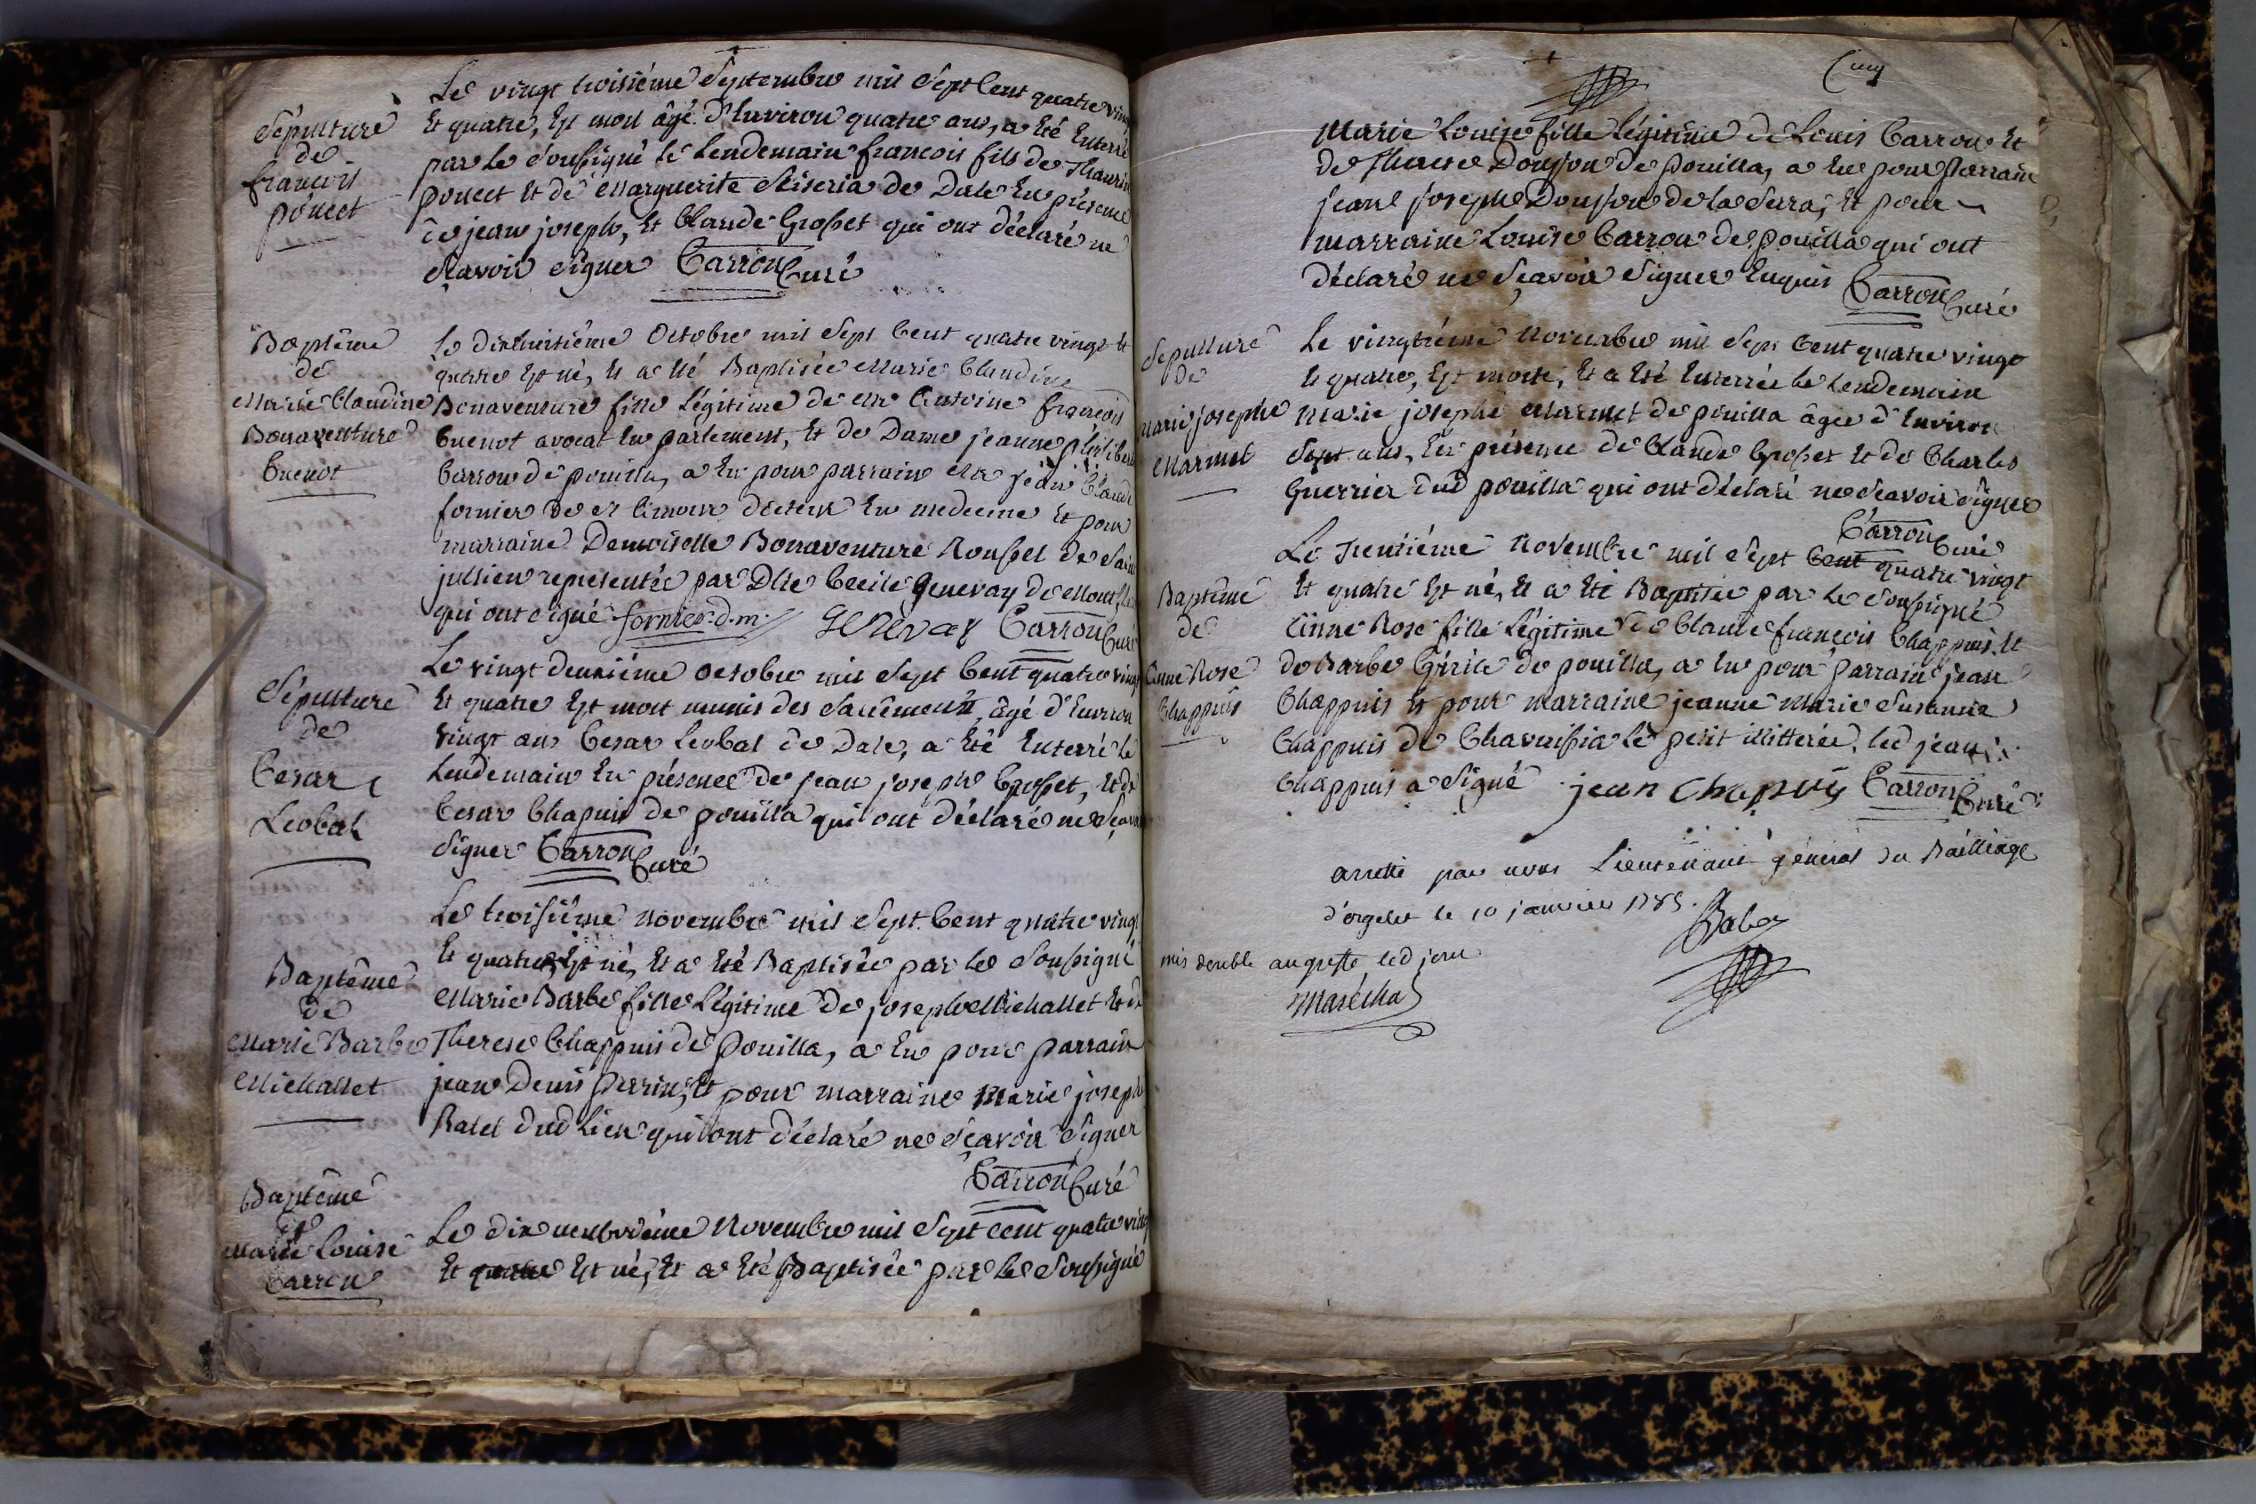 Sépulture
de
françois
poncet
Le vingt troisiéme Septembre mil Sept Cent quatre vingt
Et quatre, Est mort âgé d'Environ quatre ans, a Eté Enterré
par Le Soussigné Le Lendemain françois fils de Thaurin
poncet Et de Marguerite de Dale En présence
de jean joseph, Et Claude Grosset qui ont déclaré ne
sçavoir signer Carron Curé
Baptême
de
Marie Claudine
Bonaventure
Cuenot
Le dixhuitiéme Octobre mil Sept Cent quatre vingt Et
quatre Est né, Et a Eté Baptisée Marie Claudine
Bonaventure fille Légitime de Mr Antoine françois
Cuenot avocat En parlement, Et de Dame jeanne philiberte
Carron de pouilla, a Eu pour parrain Mr jean Claude
fornier de docteur En medecine Et pour
marraine Demoiselle Bonaventure Rousset de Saint
jullien representée par Dlle Cecile Genevay de
qui ont signé fornier d.m. Genevay Carron Curé
Sépulture
de
Cesar
Leobal
Le vingt deuxiéme octobre mil Sept Cent quatre vingt
Et quatre Est mort munis des Sacrements, âgé d'Environ
vingt ans Cesar Leobal de Dale, a Eté Enterré Le
Lendemain En présence de jean joseph Grosset, Et de
Cesar Chapuis de pouilla qui ont déclaré ne Sçavoir
Signer Carron Curé
Baptême
de
Marie Barbe
Michallet
Le troisiéme novembre mil Sept Cent quatre vingt
Et quatre, Est né, Et a Eté Baptisée par Le Soussigné
Marie Barbe fille Légitime de joseph Michallet Et de
Therese Chappuis de Pouilla, a Eu pour parrain
jean Denis Perrin, Et pour marraine Marie joseph
Ratel dud Lieu qui ont déclaré ne sçavoir Signer
Carron Curé
Baptême
de
Marie Louise
Carron
Le dix neuvviéme Novembre mil Sept cent quatre vingt
Et quatre Est né, Et a Eté Baptisée par Le Soussigné
Marie Louise fille Légitime de Louis Carron Et
de Therese Donsson de Pouilla, a Eu pour Parrain
jean joseph Donsson de La Serra, Et pour
marraine Louise Carron de pouilla qui ont
Déclaré ne Sçavoir Signer Enquis Carron Curé
Sépulture
de
Marie josephe
Marmet
Le vingtiéme Novembre mil Sept Cent quatre vingt
Et quatre, Est morte, Et a Eté Enterrée Le Lendemain
Marie josephe Marmet de pouilla âgée d'Environ
Sept ans, En présence de Claude Grosset Et de Charles
Guerrier dud pouilla qui ont déclaré ne Sçavoir Signer
Carron Curé
Baptême
de
Anne Rose
Chappuis
Le Trentiéme Novembre mil Sept Cent quatre vingt
Et quatre Est né, Et a Eté Baptisée par Le Soussigné
Anne Rose fille Légitime de Claude françois Chappuis, Et
de Barbe de pouilla, a Eu pour parrain jean
Chappuis Et pour marraine jeanne Marie Susanne
Chappuis de Chavuissia Le petit illitterée, led jean
Chappuis a Signé jean Chapuis Carron Curé
arretté par nous Lieutenant général du Bailliage
d'orgelet le 10 janvier 1785.
Babey
mis double au greffe led jour
Maréchal